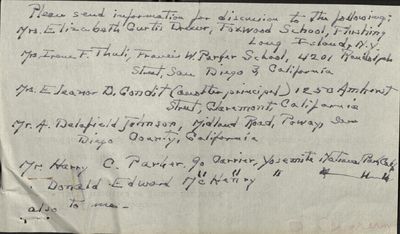 Please send information for discussion to the following:
Mrs. Elizabeth Curtis Dresser, Foxwood School, Flushing
Long Island, N.Y.
Mrs. Irene F. Thuli, Francis W. Parker School, 4201 Randolph
Street, San Diego, California
Mrs. Eleanor D. Gondit (another principal) 1250 Amherst
Street, Claremont California
Mr. A. Delafield Johnson, Midland Road, Poway, San
Diego County, California
Mr Harry C. Parker. % Carrier, Yosemite National Park Calif.
" Donald Edward McHenry " " " "
also to me —